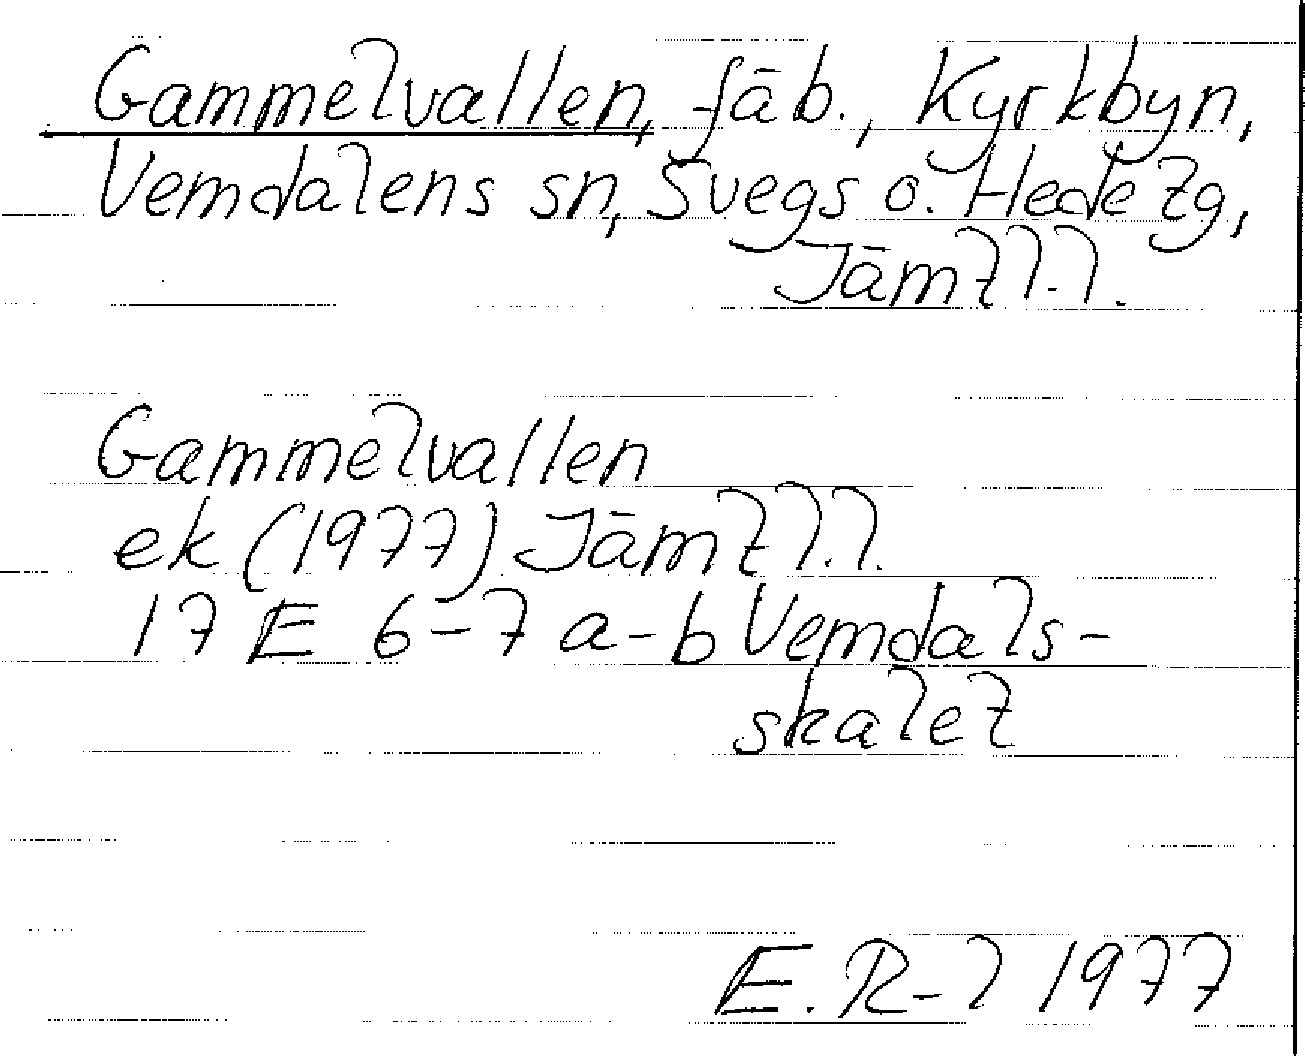 Gammelvallen, fäb., Kyrkbyn,
Vemdalens sn, Svegs o. Hede tg,
Jämtl.l.
Gammelvallen
ek (1977) Jämtl.l.
17 E 6-7 a-b Vemdals-
skalet
E. R-l 1977